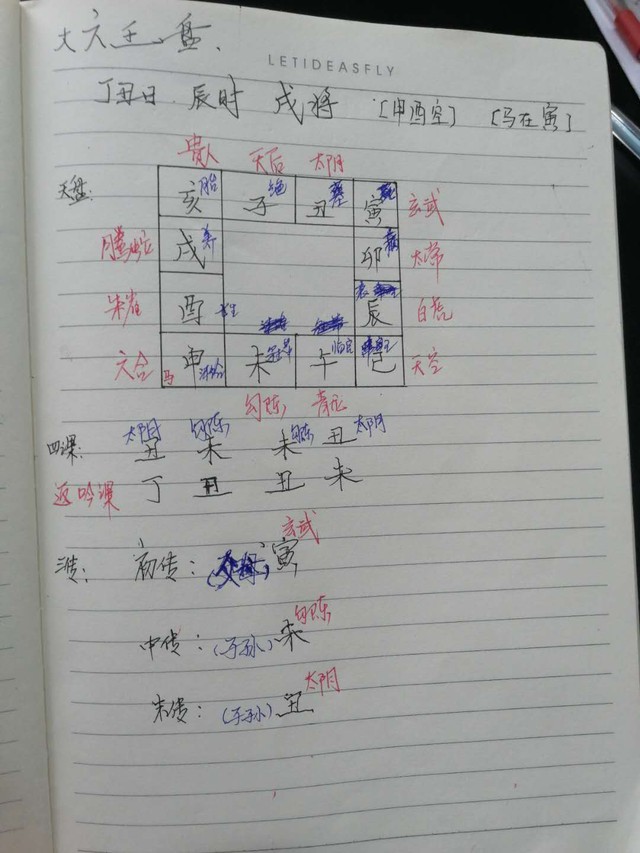 大六壬盘.
LETIDEASFLY
丁丑日 辰时 戌将 [申酉空] [马在寅]
贵人 天后 太阴
天盘: 亥胎 子绝 丑墓 寅 玄武
螣蛇 戌养 卯病 太常
朱雀 酉 长生 辰衰 白虎
六合 马 申沐浴 未冠带 午临官 巳 天空
勾陈 青龙
太阴 勾陈 勾陈 太阴
四课: 丑 未 未 丑
返吟课 丁 丑 丑 未
玄武
三传: 初传: 寅
勾陈
中传: (子孙) 未
太阴
末传: (子孙) 丑